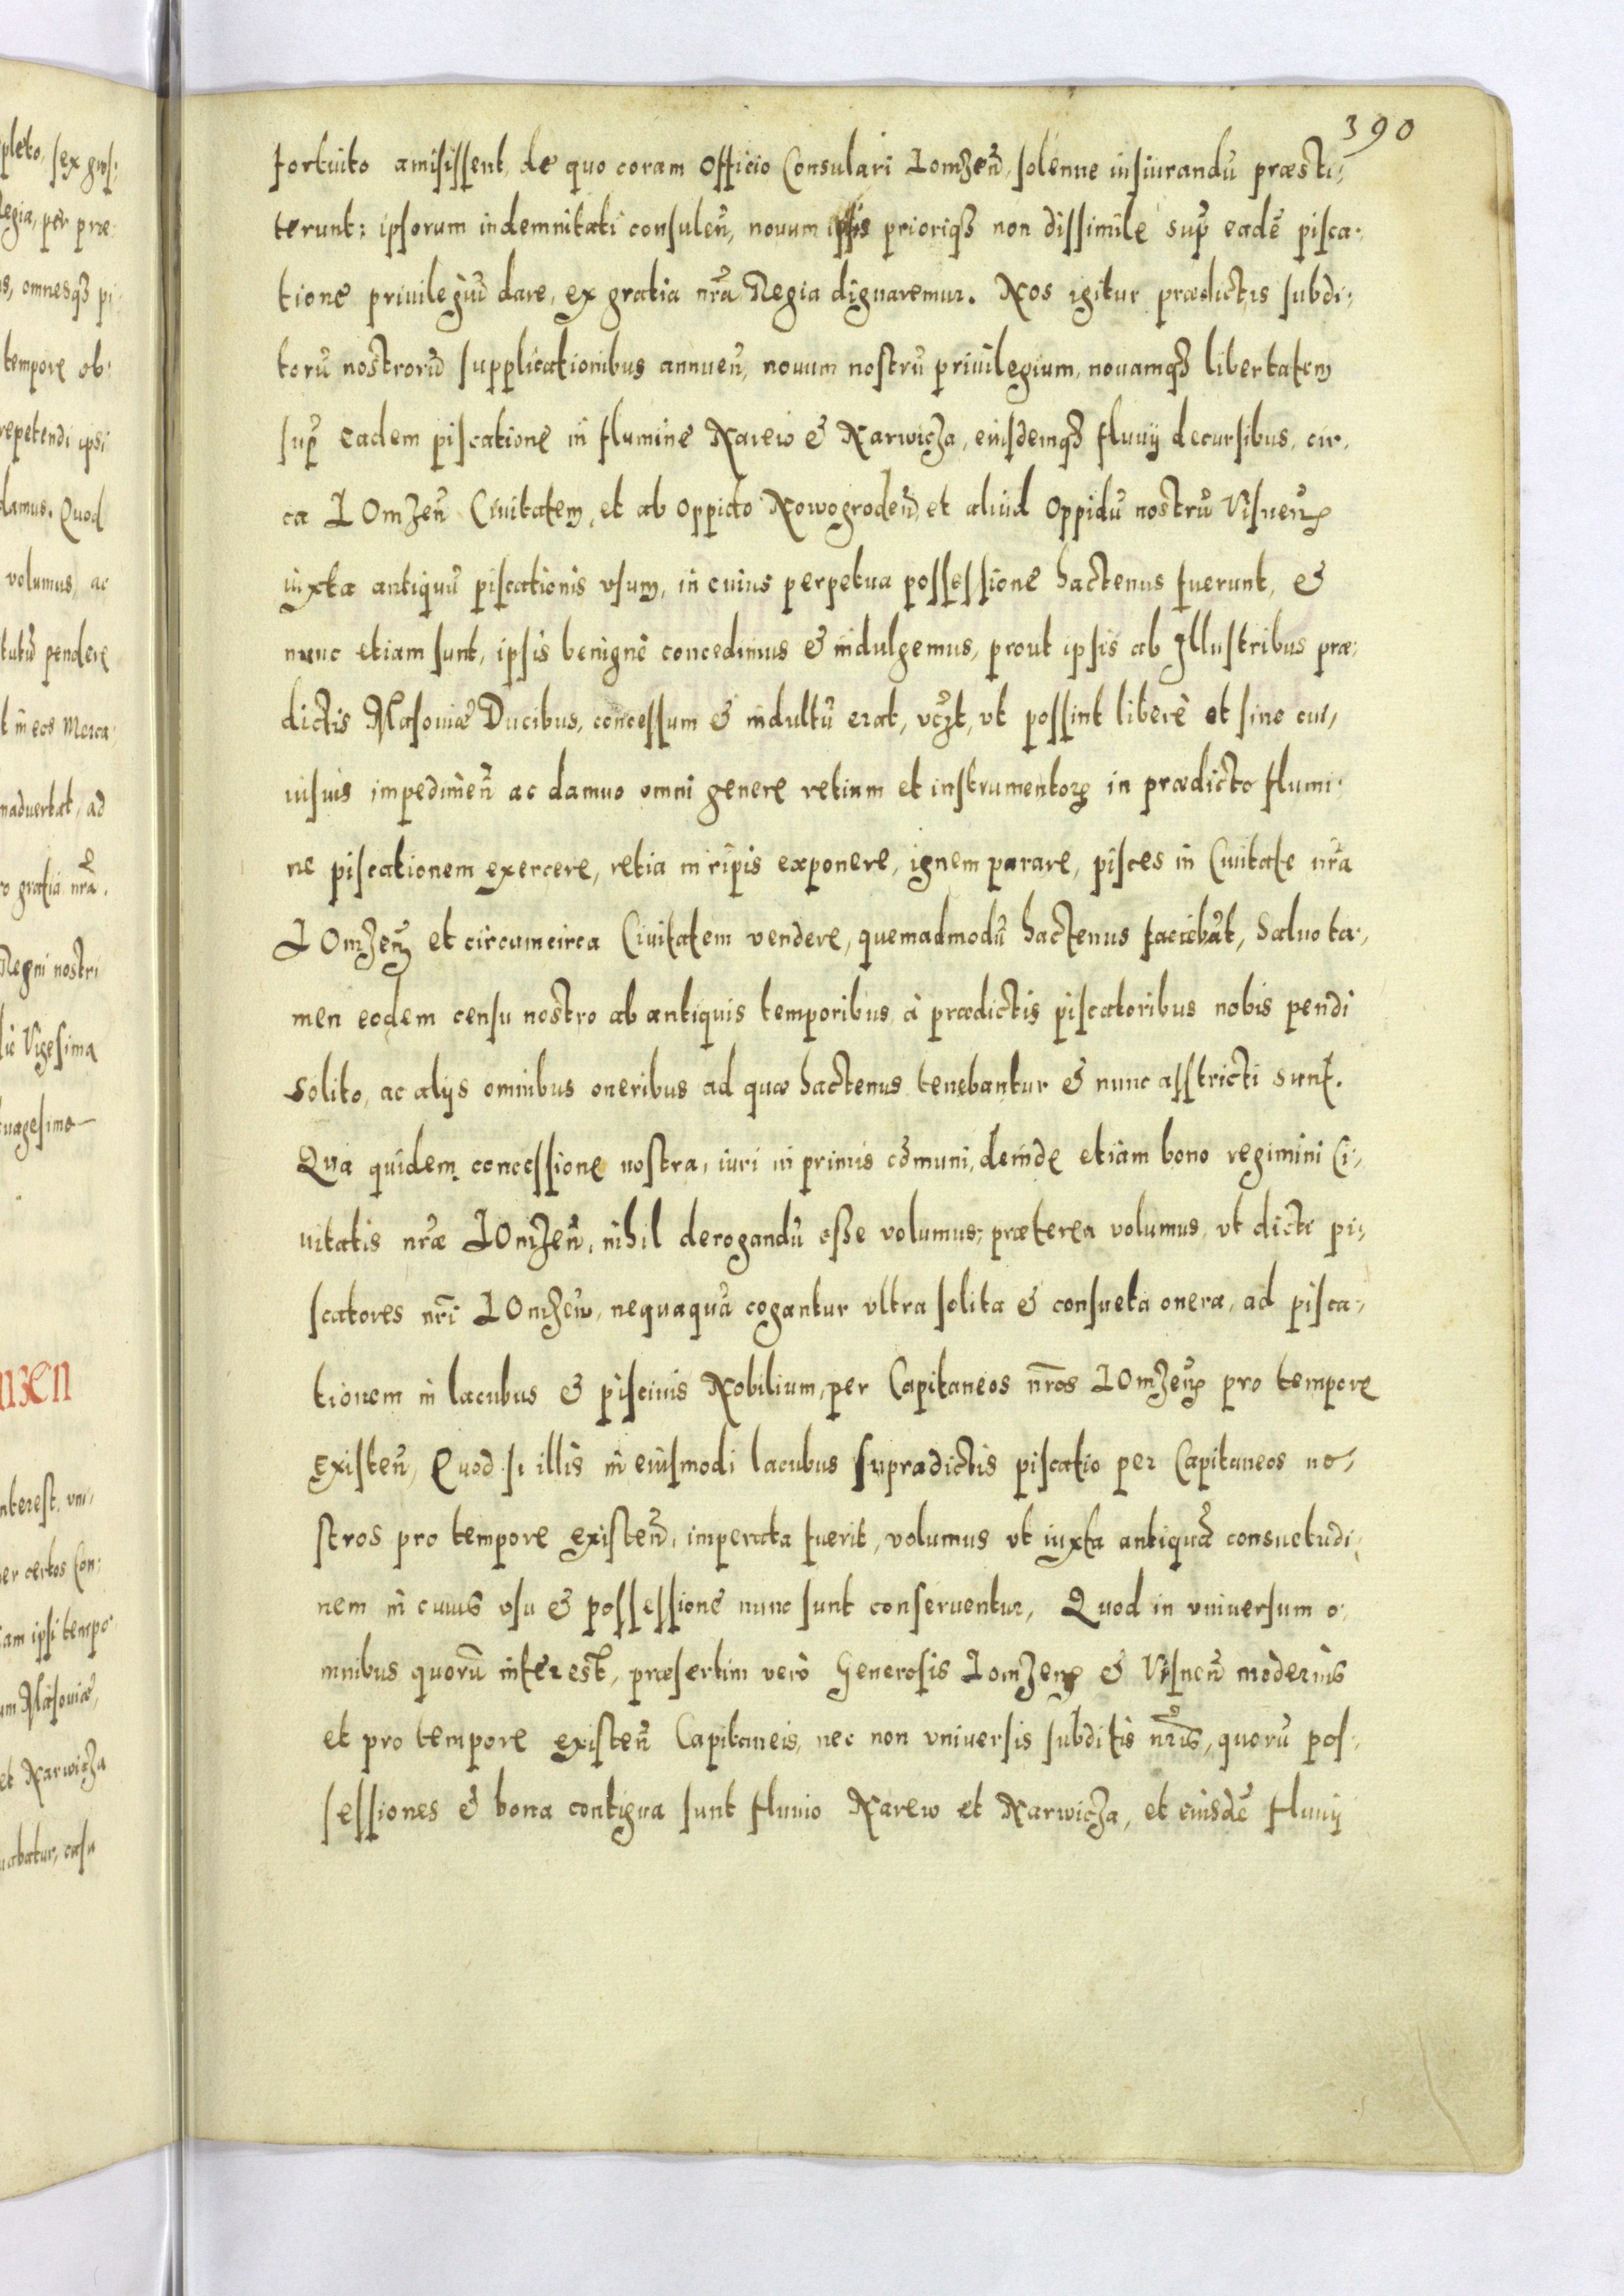 390
fortuito amisissent, de quo coram Officio Consulari Lomzeñ, solenne iusiurandũ præsti:
terunt: ipsorum indemnitati consuleñ, nouum ipsis prioriqȝ non dissimile sup̃ eadẽ pisca:
tione priuilegiũ dare, ex gratia nr̃a Regia dignaremur. Nos igitur prædictis subdi:
torũ nostrorũ supplicationibus annueñ, nouum nostrũ priuilegium, nouamqȝ libertatem
sup̃ eadem piscatione in flumine Narew & Narwicza, eiusdemqȝ fluuij decursibus, cir,
ca LOmzeñ Ciuitatem, et ab oppido Nowogrodeñ, et aliud Oppidũ nostrũ Visneñ
iuxta antiquũ piscationis vsum, in cuius perpetua possessione hactenus fuerunt, &
nunc etiam sunt, ipsis benignè concedimus & indulgemus, prout ipsis ab Illustribus præ:
dictis Masouiæ Ducibus, concessum & indultũ erat, vcȝt, vt possint liberè et sine cui,
usuis impedimeñ ac damno omni genere retium et instrumentorꝝ in prædicto flumi:
ne piscationem exercere, retia in ripis exponere, ignem parare, pisces in Ciuitate nr̃a
LOmzeñ et circumcirca Ciuitatem vendere, quemadmodũ hactenus faciebãt, Saluo ta:,
men eodem censu nostro ab antiquis temporibus à prædictis piscatoribus nobis pendi
solito, ac alijs omnibus oneribus ad quæ hactenus tenebantur & nunc asstricti sunt.
Qua quidem concessione nostra, iuri in primis cõmuni, deinde etiam bono regimini Ci:,
uitatis nr̃æ LOmzeñ, nihil derogandũ esse volumus; præterea volumus, vt dicti pi:,
scatores nr̃i LOmzeñ, nequaquã cogantur vltra solita & consueta onera, ad pisca:,
tionem in lacubus & piscinis Nobilium, per Capitaneos nr̃os LOmzeñ pro tempore
existeñ, Quod si illis in eiusmodi lacubus supradictis piscatio per Capitaneos no:,
stros pro tempore existeñ, imperata fuerit, volumus vt iuxta antiquã consuetudi:,
nem in cuius vsu & possessione nunc sunt conseruentur, Quod in vniuersum o:
mnibus quorũ interest, præsertim verò Generosis Lomzeñ & Visneñ modernis
et pro tempore existeñ Capitaneis, nec non vniuersis subditis nr̃is, quorũ pos:
sessiones & bona contigua sunt fluuio Narew et Narwicza, et eiusdẽ fluuij